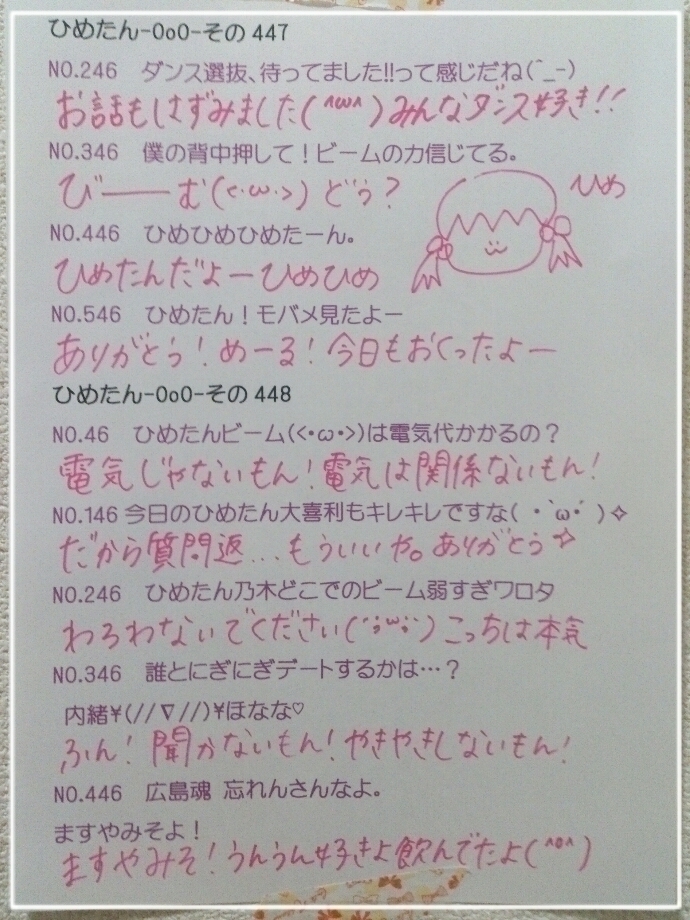 ひめたん-OoO-その447
NO.246 ダンス選抜、待ってました!!って感じだね(^_-)
お話もはずみました(^ω^)みんなダンス好き!!
NO.346 僕の背中押して！ビームの力信じてる。
びーーむ(<・ω・>)どぅ?
ひめ
NO.446 ひめひめひめたーん。
ひめたんだよーひめひめ
NO.546 ひめたん！モバメ見たよー
ありがとう!めーる!今日もおくったよー
ひめたん-OoO-その448
NO.46 ひめたんビーム(<・ω・>)は電気代かかるの？
電気じゃないもん!電気は関係ないもん!
NO.146 今日のひめたん大喜利もキレキレですな( ・`ω・´ )✧
だから質問返...もういいや。ありがとう☆
NO.246 ひめたん乃木どこでのビーム弱すぎワロタ
わろわないでください(´;ω;`)こっちは本気
NO.346 誰とにぎにぎデートするかは…？
内緒¥(//∇//)¥ほなな♡
ふん!聞かないもん!やきやきしないもん!
NO.446 広島魂 忘れんさんなよ。
ますやみそよ！
ますやみそ!うんうん好きよ飲んでたよ(^o^)